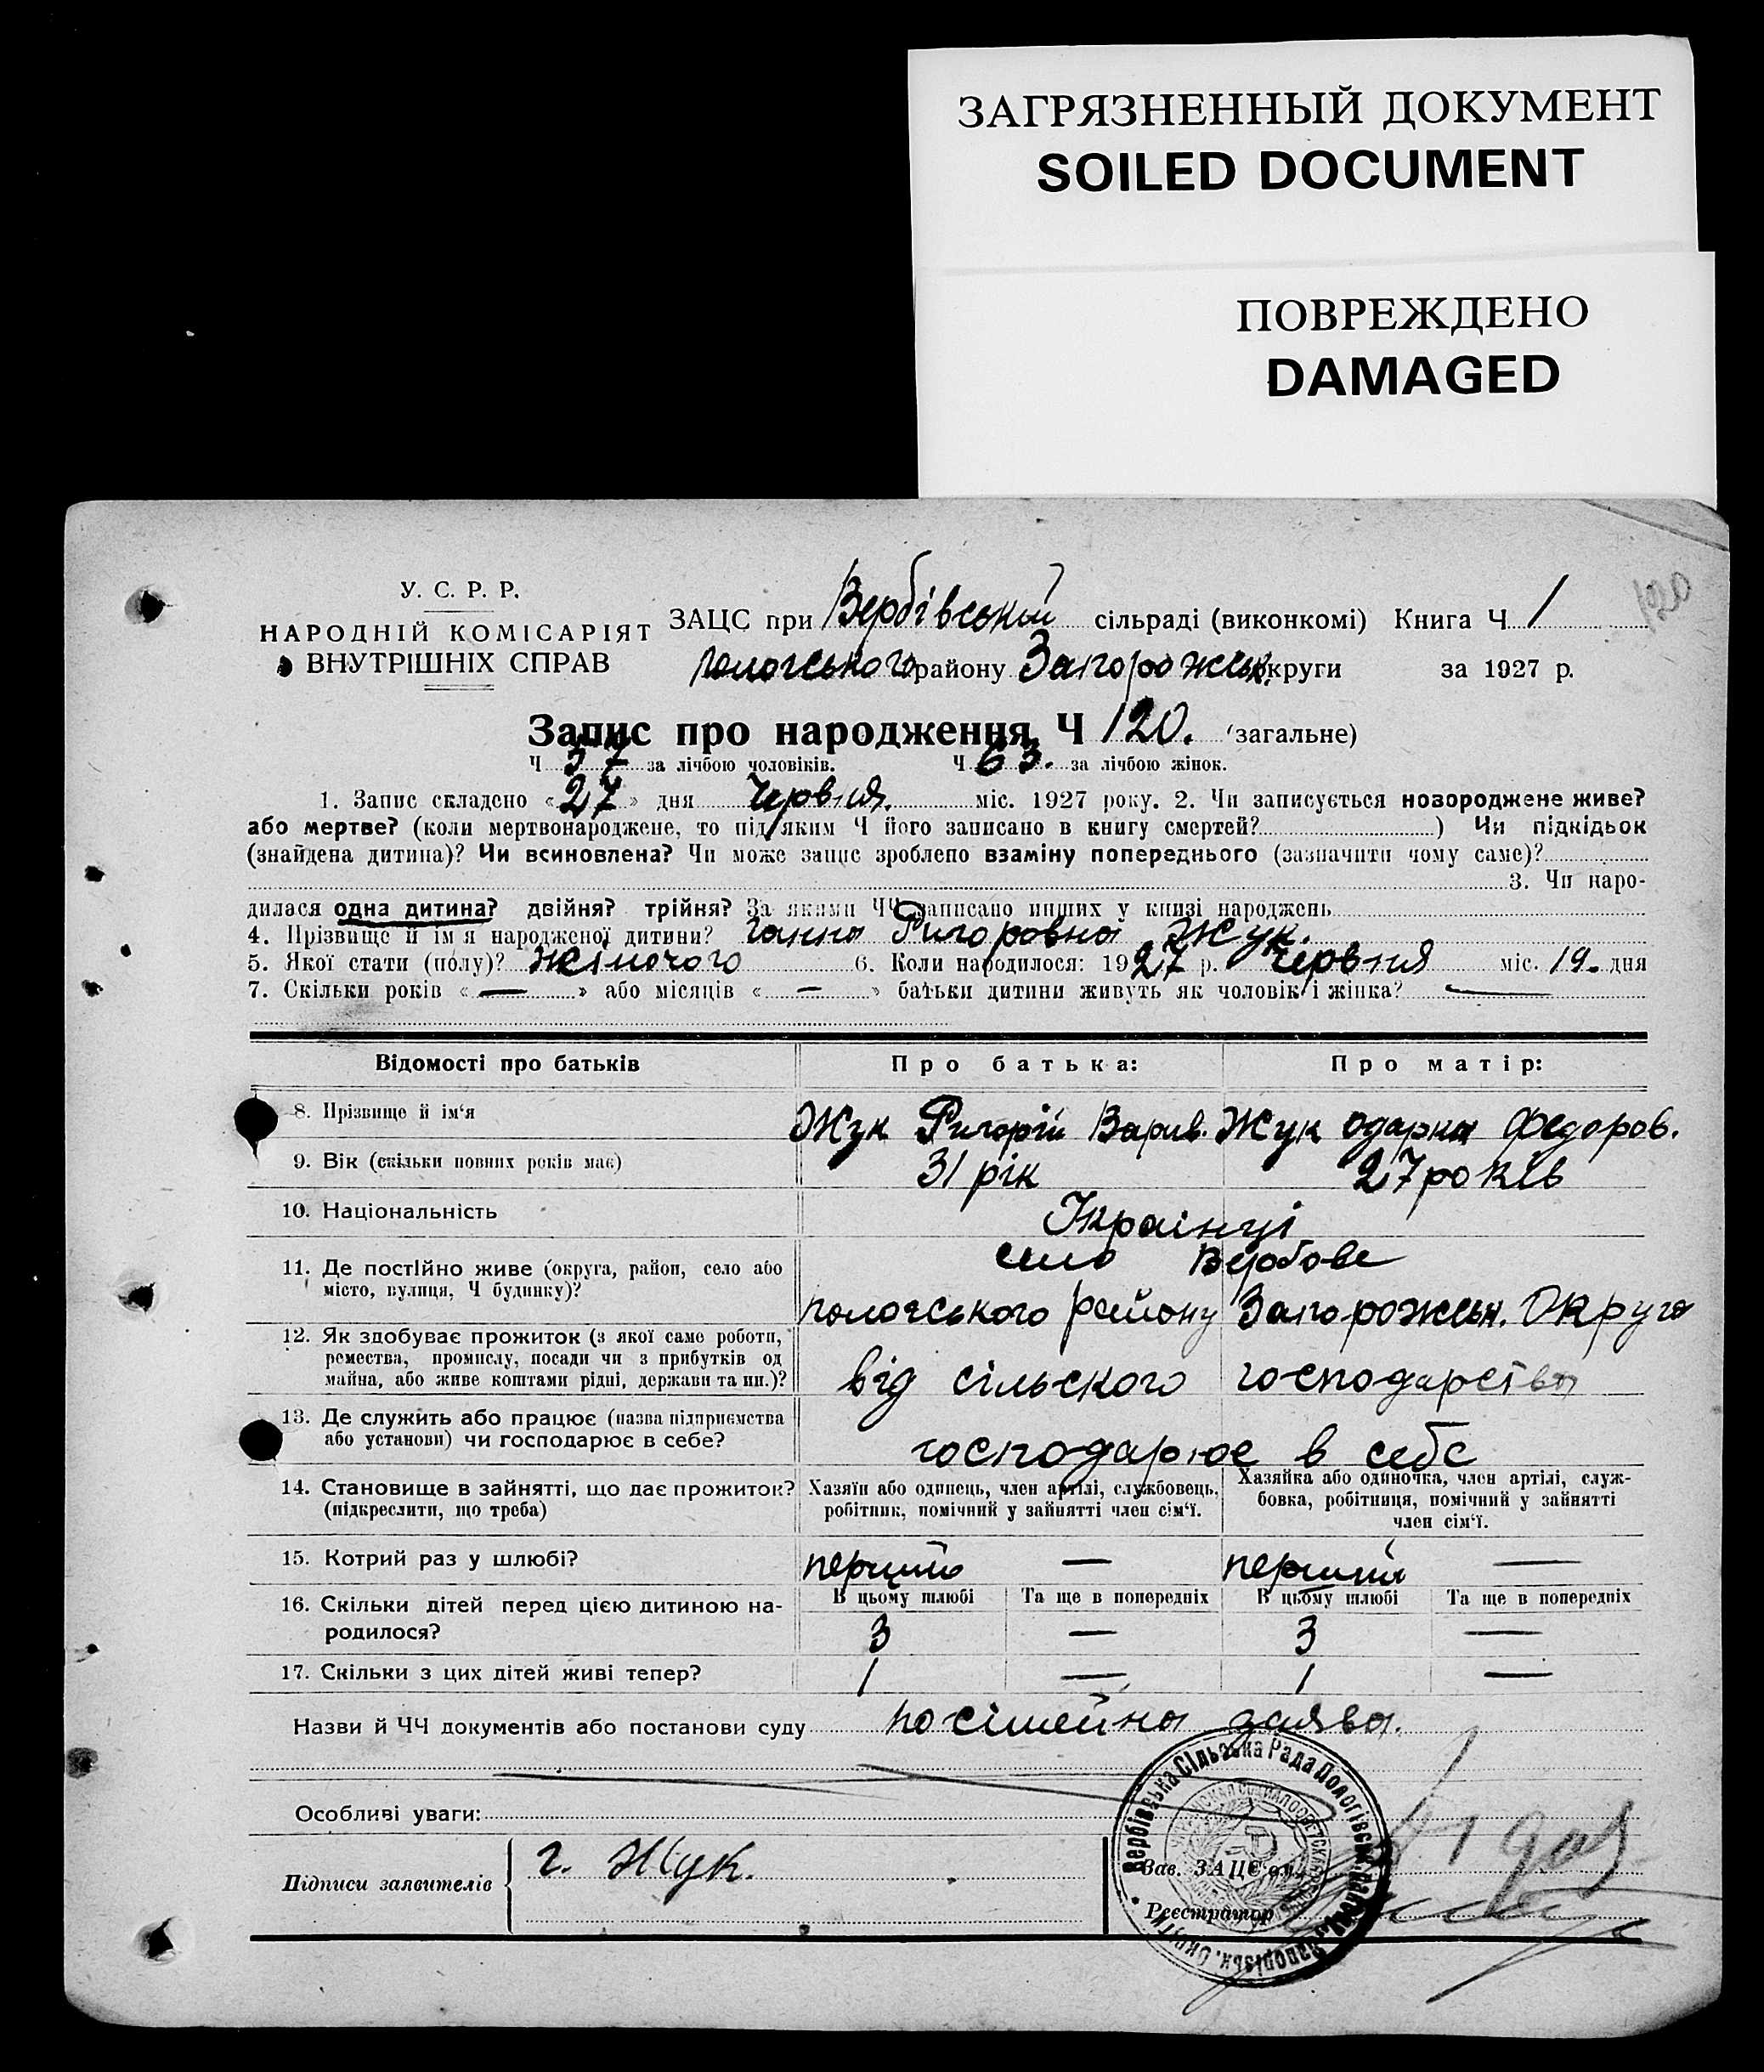 ЗАГРЯЗНЕННЫЙ ДОКУМЕНТ
SOILED DOCUMENT
ПОВРЕЖДЕНО
DAMAGED
120
У. С. Р. Р.
НАРОДНІЙ КОМІСАРІЯТ
ВНУТРІШНІХ СПРАВ
ЗАЦС при Вербівській сільраді (виконкомі) Книга Ч 1
пологського району Запорожськ. округи за 1927 р.
Запис про народження Ч 120. (загальне)
Ч 57 за лічбою чоловіків. Ч 63. за лічбою жінок.
1. Запис складено « 27 » дня червня. міс. 1927 року. 2. Чи записується новороджене живе?
або мертве? (коли мертвонароджене, то під яким Ч його записано в книгу смертей? ) Чи підкідьок
(знайдена дитина)? Чи всиновлена? Чи може запис зроблено взаміну попереднього (зазначити чому саме)?
3. Чи наро-
дилася одна дитина? двійня? трійня? За якими ЧЧ записано инших у книзі народжень
4. Прізвище й ім'я народженої дитини? Ганна Ригоровна Жук.
5. Якої стати (полу)? жіночого 6. Коли народилося: 1927 р. червня міс. 19. дня
7. Скільки років « — » або місяців « — » батьки дитини живуть як чоловік і жінка? —
Відомості про батьків Про батька: Про матір:
8. Прізвище й ім'я Жук Ригорій Варив. Жук Одарка Федоров.
9. Вік (скільки повних років має) 31 рік 27 років
10. Національність Українці
село Вербове
11. Де постійно живе (округа, район, село або
місто, вулиця, Ч будинку)? пологського району Запорожськ. Округа
12. Як здобуває прожиток (з якої саме роботи,
ремества, промислу, посади чи з прибутків од
майна, або живе коштами рідні, держави та ин.)? від сільского господарства
13. Де служить або працює (назва підприємства
або установи) чи господарює в себе? господарює в себе
14. Становище в зайнятті, що дає прожиток? Хазяїн або одинець, член артілі, службовець, Хазяйка або одиночка, член артілі, служ-
(підкреслити, що треба) робітник, помічний у зайнятті член сім'ї. бовка, робітниця, помічний у зайнятті
член сім'ї.
15. Котрий раз у шлюбі? перший — перший —
16. Скільки дітей перед цією дитиною на- В цьому шлюбі Та ще в попередніх В цьому шлюбі Та ще в попередніх
родилося? 3 — 3 —
17. Скільки з цих дітей живі тепер? 1 — 1 —
Назви й ЧЧ документів або постанови суду посімейна заява.
Особливі уваги:
Підписи заявителів Г. Жук. Зав. ЗАЦС'ом
Реєстратор
Вербівська Сільська Рада Пологівськ. району Запорізьк. округи